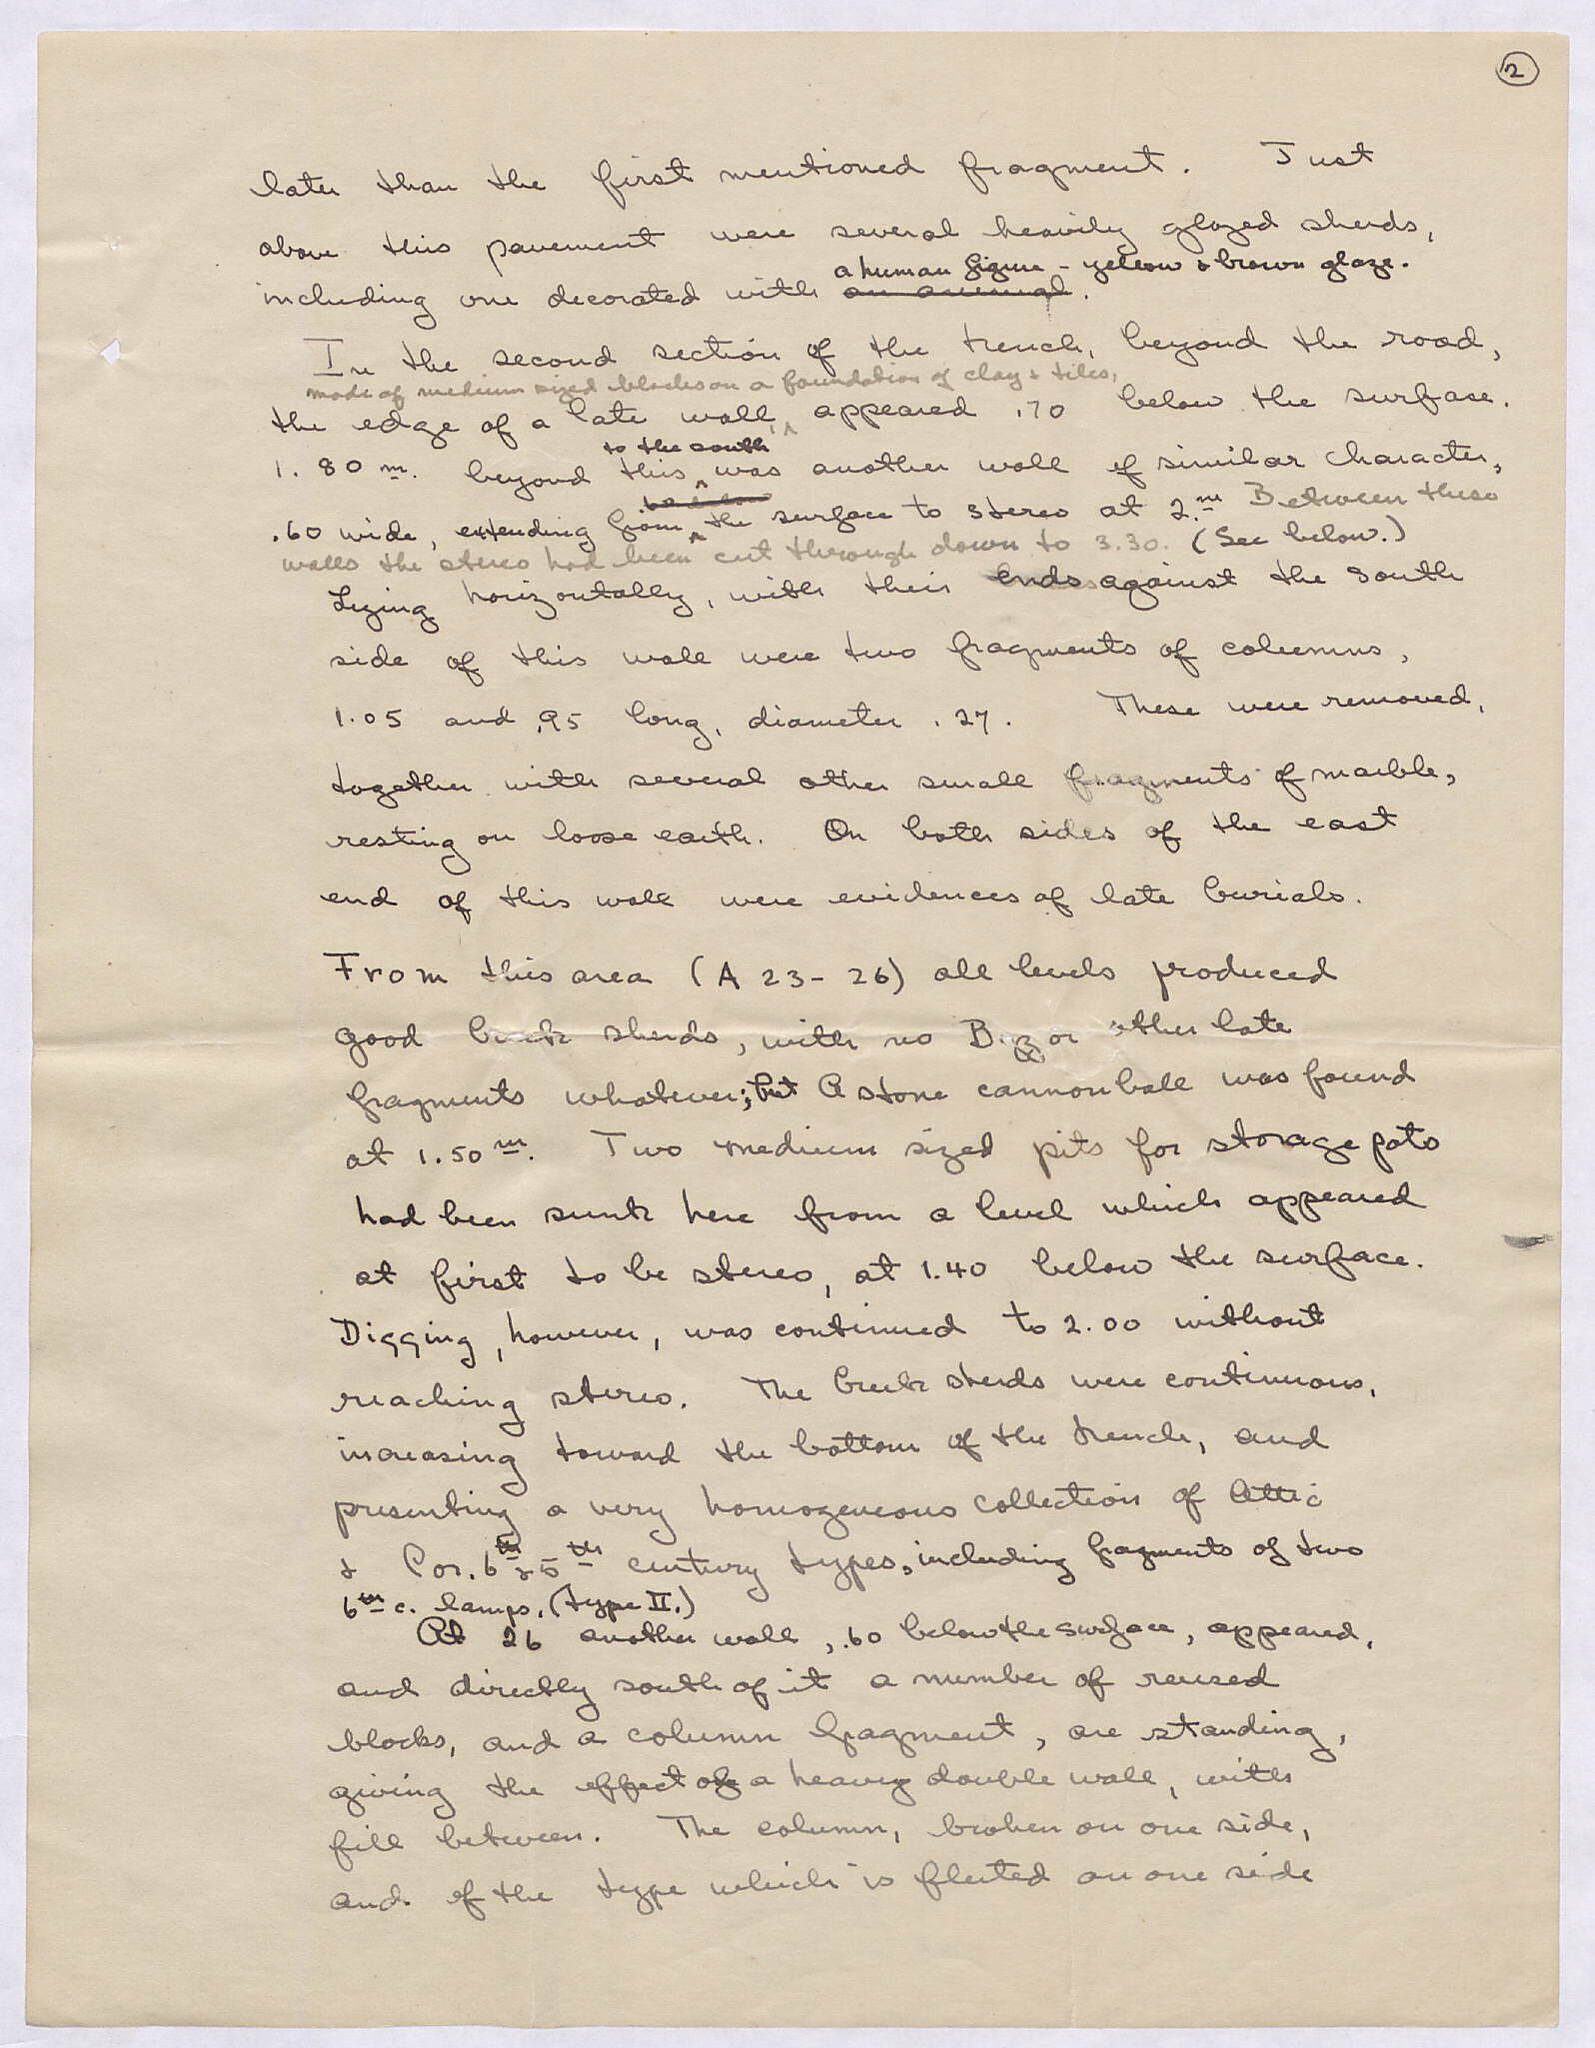 2
later than the first mentioned fragment. Just
above this pavement were several heavily glazed sherds,
a human figure - yellow & brown glaze.
including one decorated with an animal.
In the second section of the trench, beyond the road,
made of medium sized blocks on a foundation of clay & tiles,
the edge of a late wall, appeared .70 below the surface.
to the south
1.80 m. beyond this was another wall of similar character,
.60 wide, extending from the surface to stereo at 2.m Between these
walls the stereo had been cut through down to 3.30. (See below.)
Lying horizontally, with their ends against the south
side of this wall were two fragments of columns,
1.05 and .95 long, diameter .27. These were removed,
together with several other small fragments of marble,
resting on loose earth. On both sides of the east
end of this wall were evidences of late burials.
From this area (A 23-26) all levels produced
good Greek sherds, with no Byz or other late
fragments whatever; but A stone cannonball was found
at 1.50 m. Two medium sized pits for storage pots
had been sunk here from a level which appeared
at first to be stereo, at 1.40 below the surface.
Digging, however, was continued to 2.00 without
reaching stereo. The Greek sherds were continuous,
increasing toward the bottom of the trench, and
presenting a very homogeneous collection of Attic
& Cor. 6th & 5th century types, including fragments of two
6th c. lamps. (type II.)
At 26 another wall, .60 below the surface, appeared,
and directly south of it a number of reused
blocks, and a column fragment, are standing,
giving the effect of a heavy double wall, with
fill between. The column, broken on one side,
and of the type which is fluted on one side